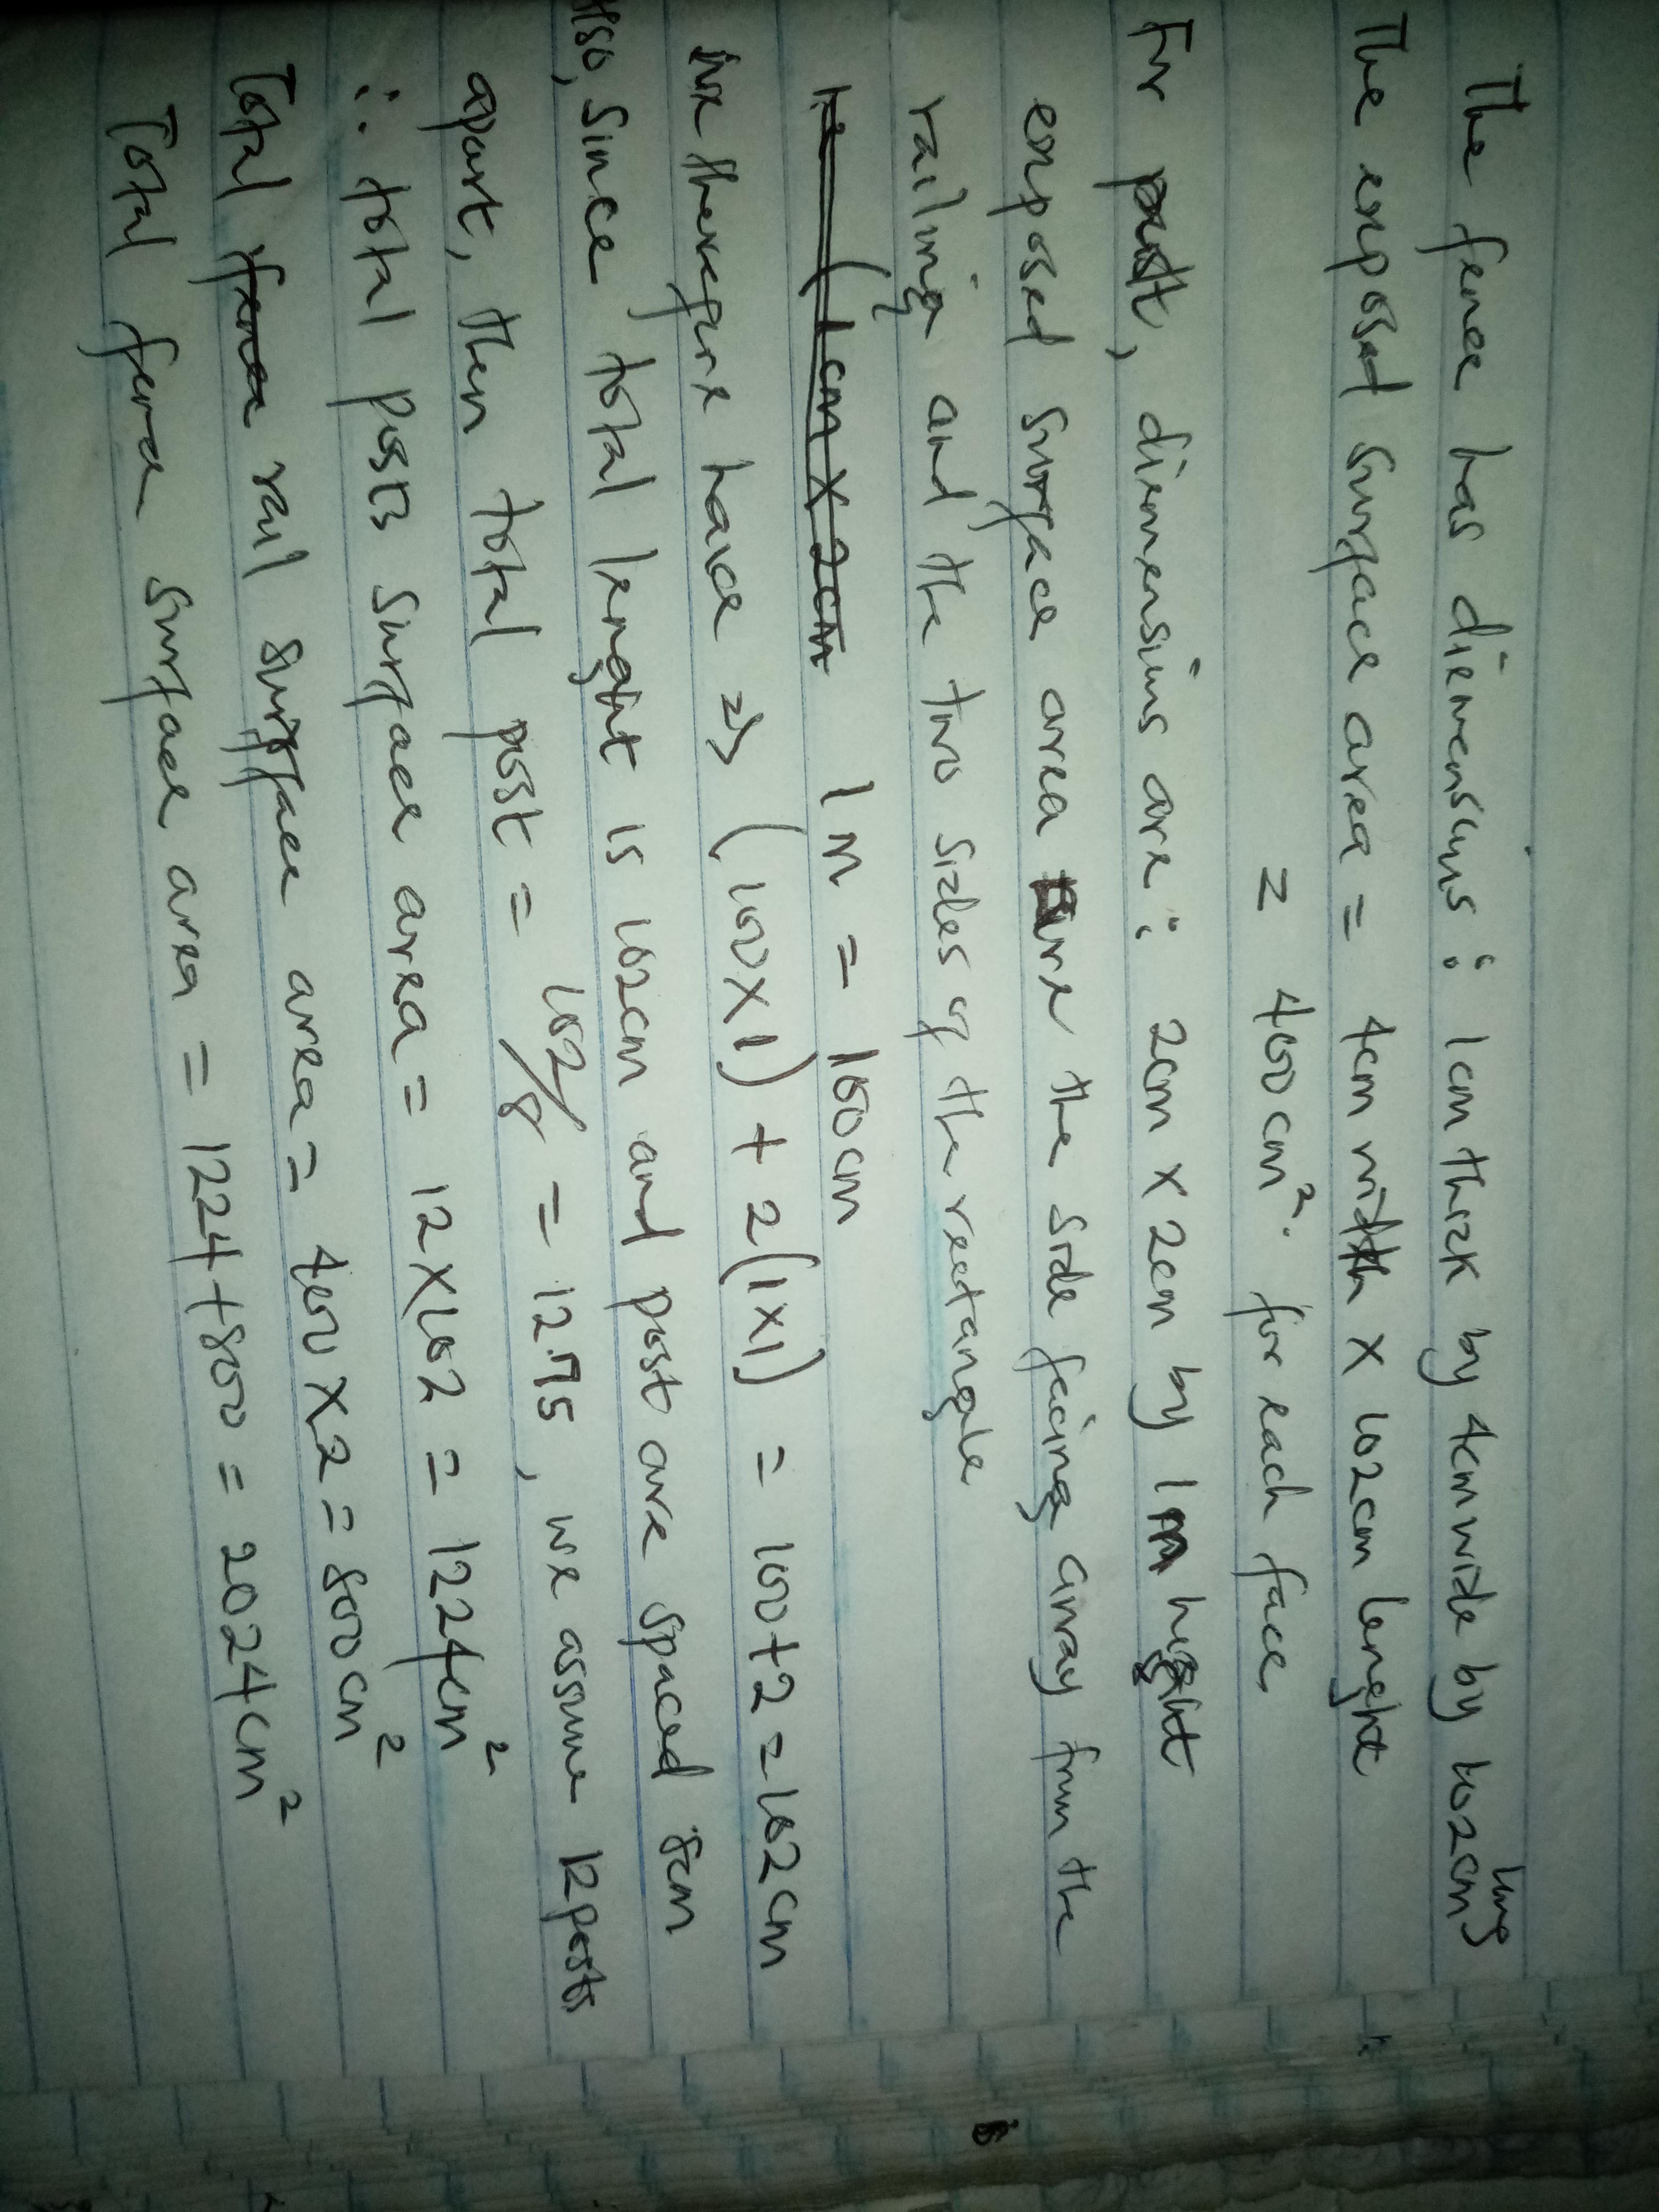 The fence has diemensions : 1cm thick by 4cm wide by 102cm long
The exposed surface area = 4cm width x 102cm lenght
= 400cm². for each face.
For post, diemensions are : 2cm x 2cm by 1m height
exposed surface area are the side facing away from the
railing and the two sides of the rectangle
1m = 100cm
we therefore have => (100x1) + 2(1x1) = 100+2 = 102cm
Also, Since total lenght is 102cm and post are spaced 8cm
apart, then total post = 102/8 = 12.75, we assume 12 posts
∴ total posts surface area = 12x102 = 1224cm²
Total rail surface area = 400 x 2 = 800cm²
Total fence surface area = 1224+800 = 2024cm²